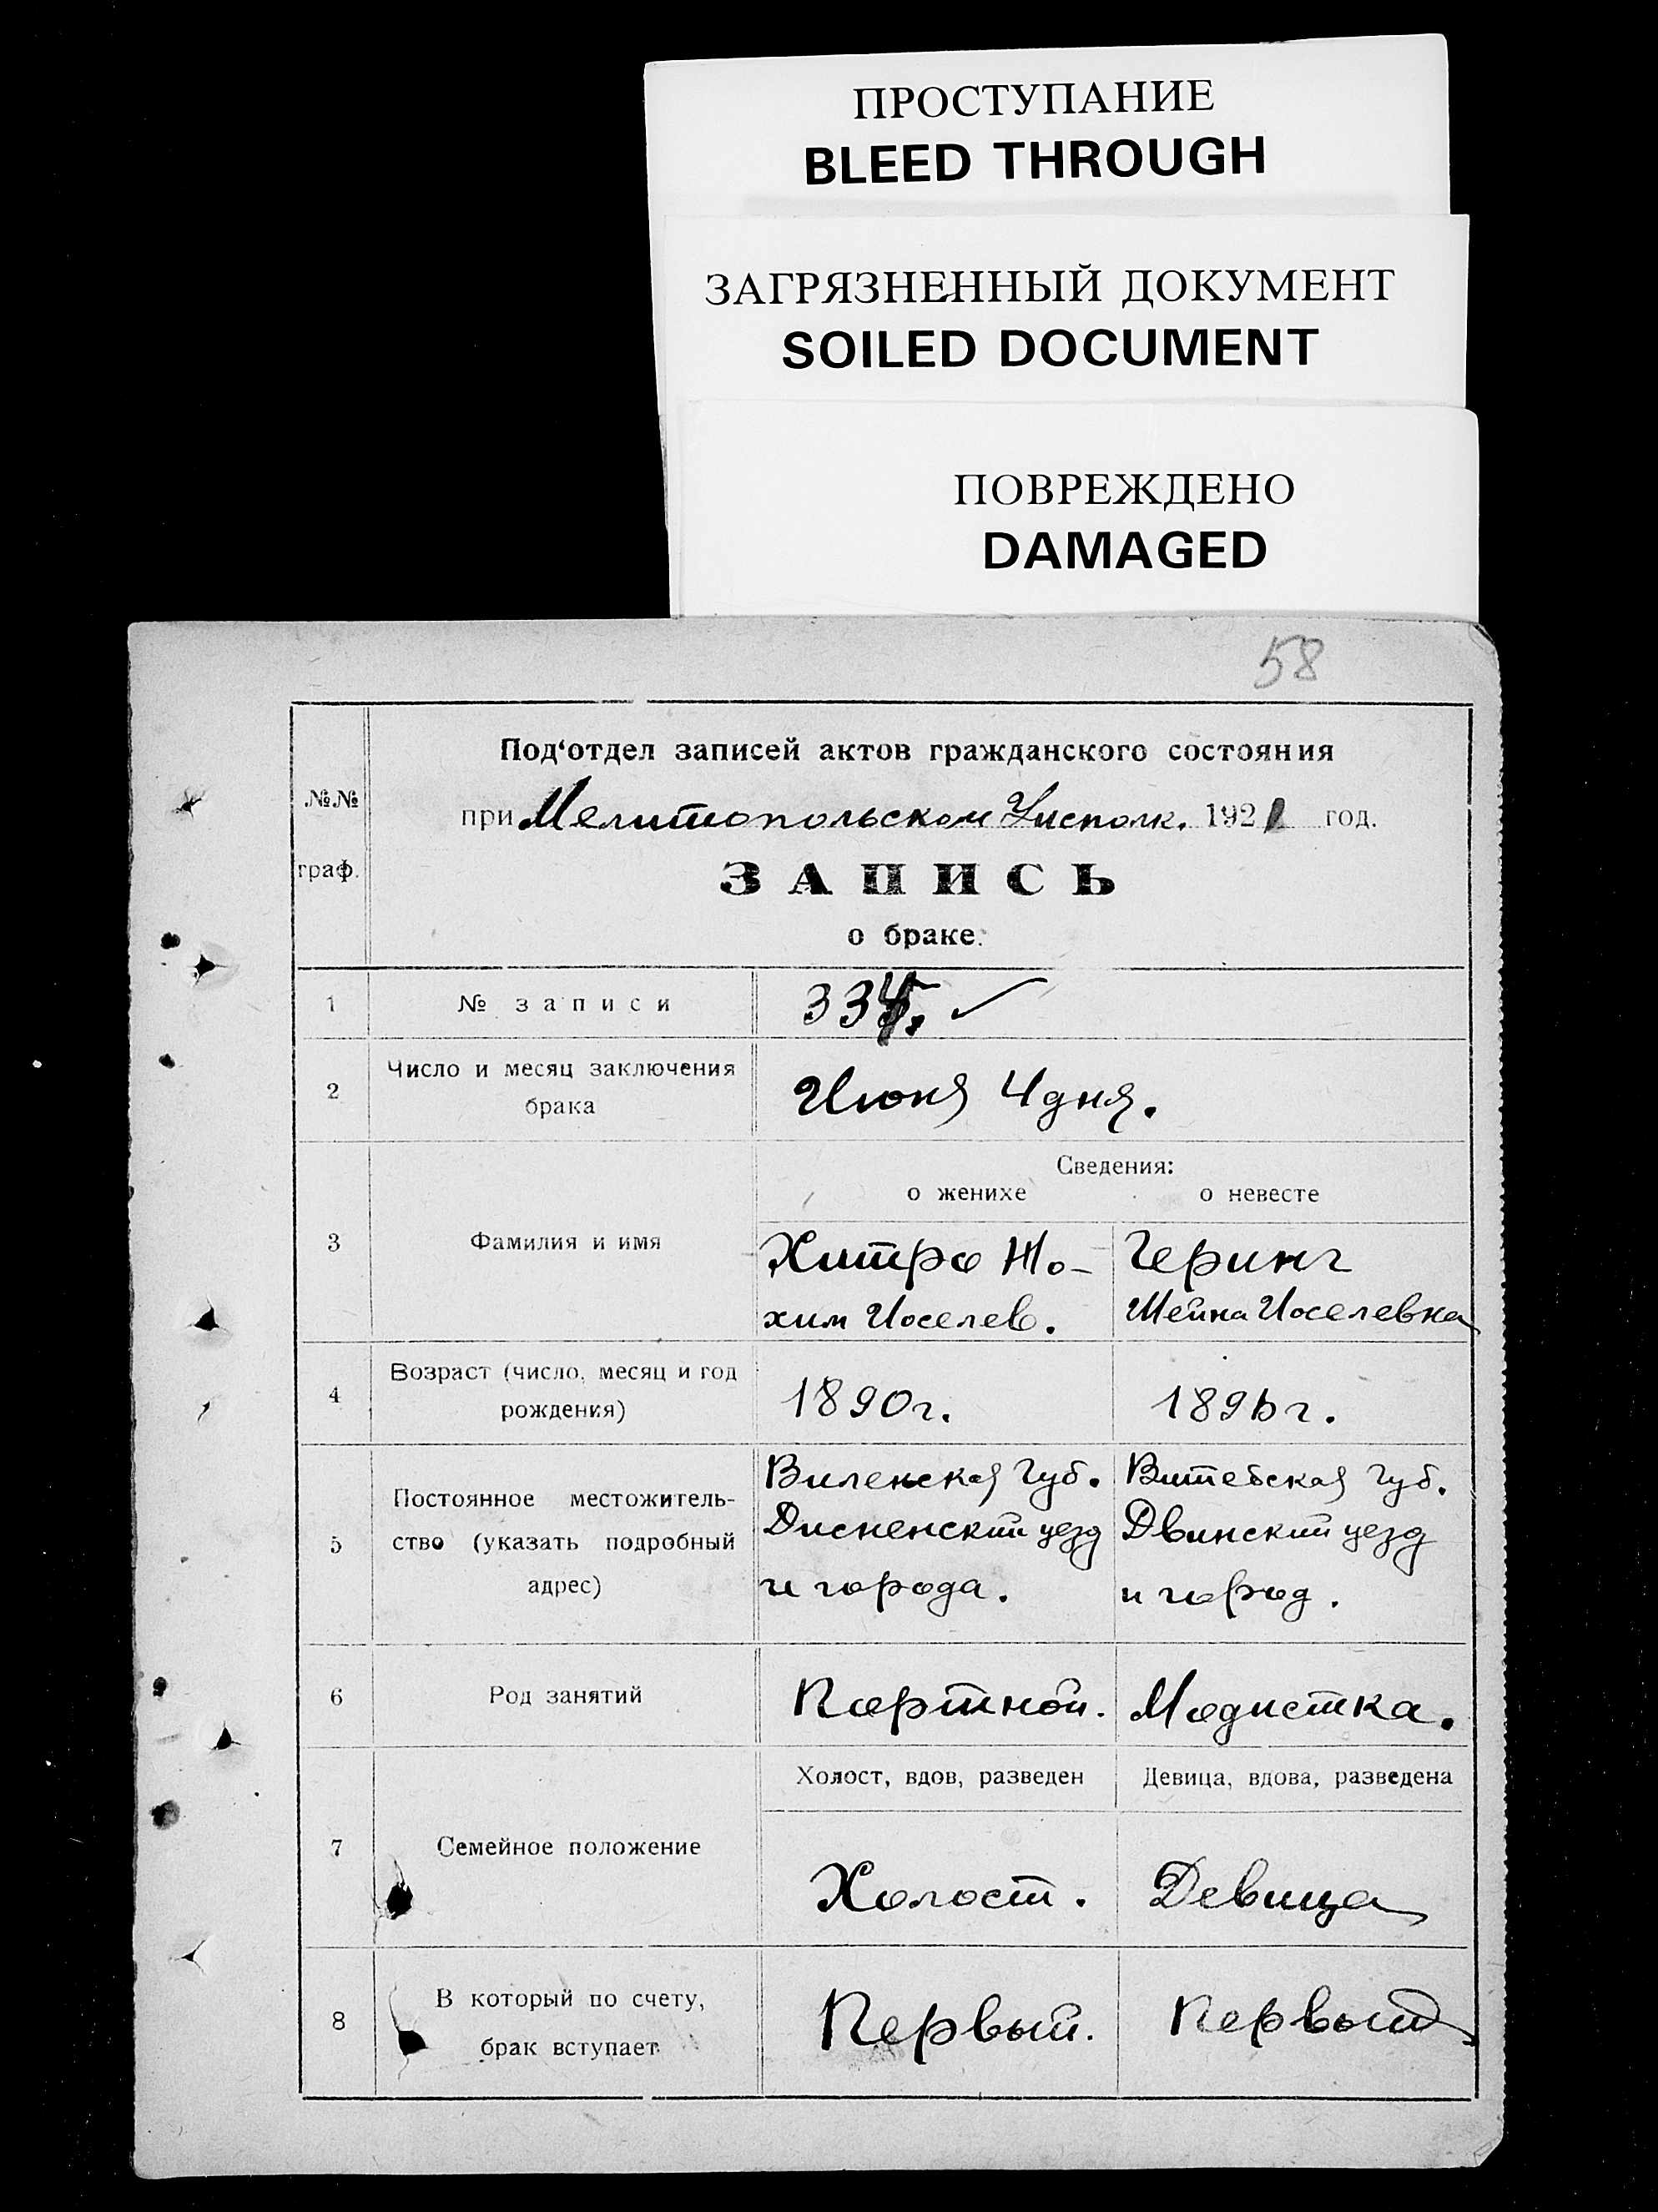 ПРОСТУПАНИЕ
BLEED THROUGH
ЗАГРЯЗНЕННЫЙ ДОКУМЕНТ
SOILED DOCUMENT
ПОВРЕЖДЕНО
DAMAGED
58
№№
граф.
Под‘отдел записей актов гражданского состояния
при Мелитопольском Уисполк. 1921 год.
ЗАПИСЬ
о браке.
1 № записи
2 Число и месяц заключения
брака
Июня 4 дня.
Сведения:
о женихе о невесте
3 Фамилия и имя
Хитро Но- Геринг
хим Иоселев. Шейна Иоселевна
4 Возраст (число, месяц и год
рождения)
1890г. 1896г.
5 Постоянное местожитель-
ство (указать подробный
адрес)
Виленская Губ. Витебская Губ.
Дисненский уезд Двинский уезд
и города. и город.
6 Род занятий Портной. Модистка.
Холост, вдов, разведен Девица, вдова, разведена
7 Семейное положение
Холост. Девица
8 В который по счету,
брак вступает
Первый. Первый